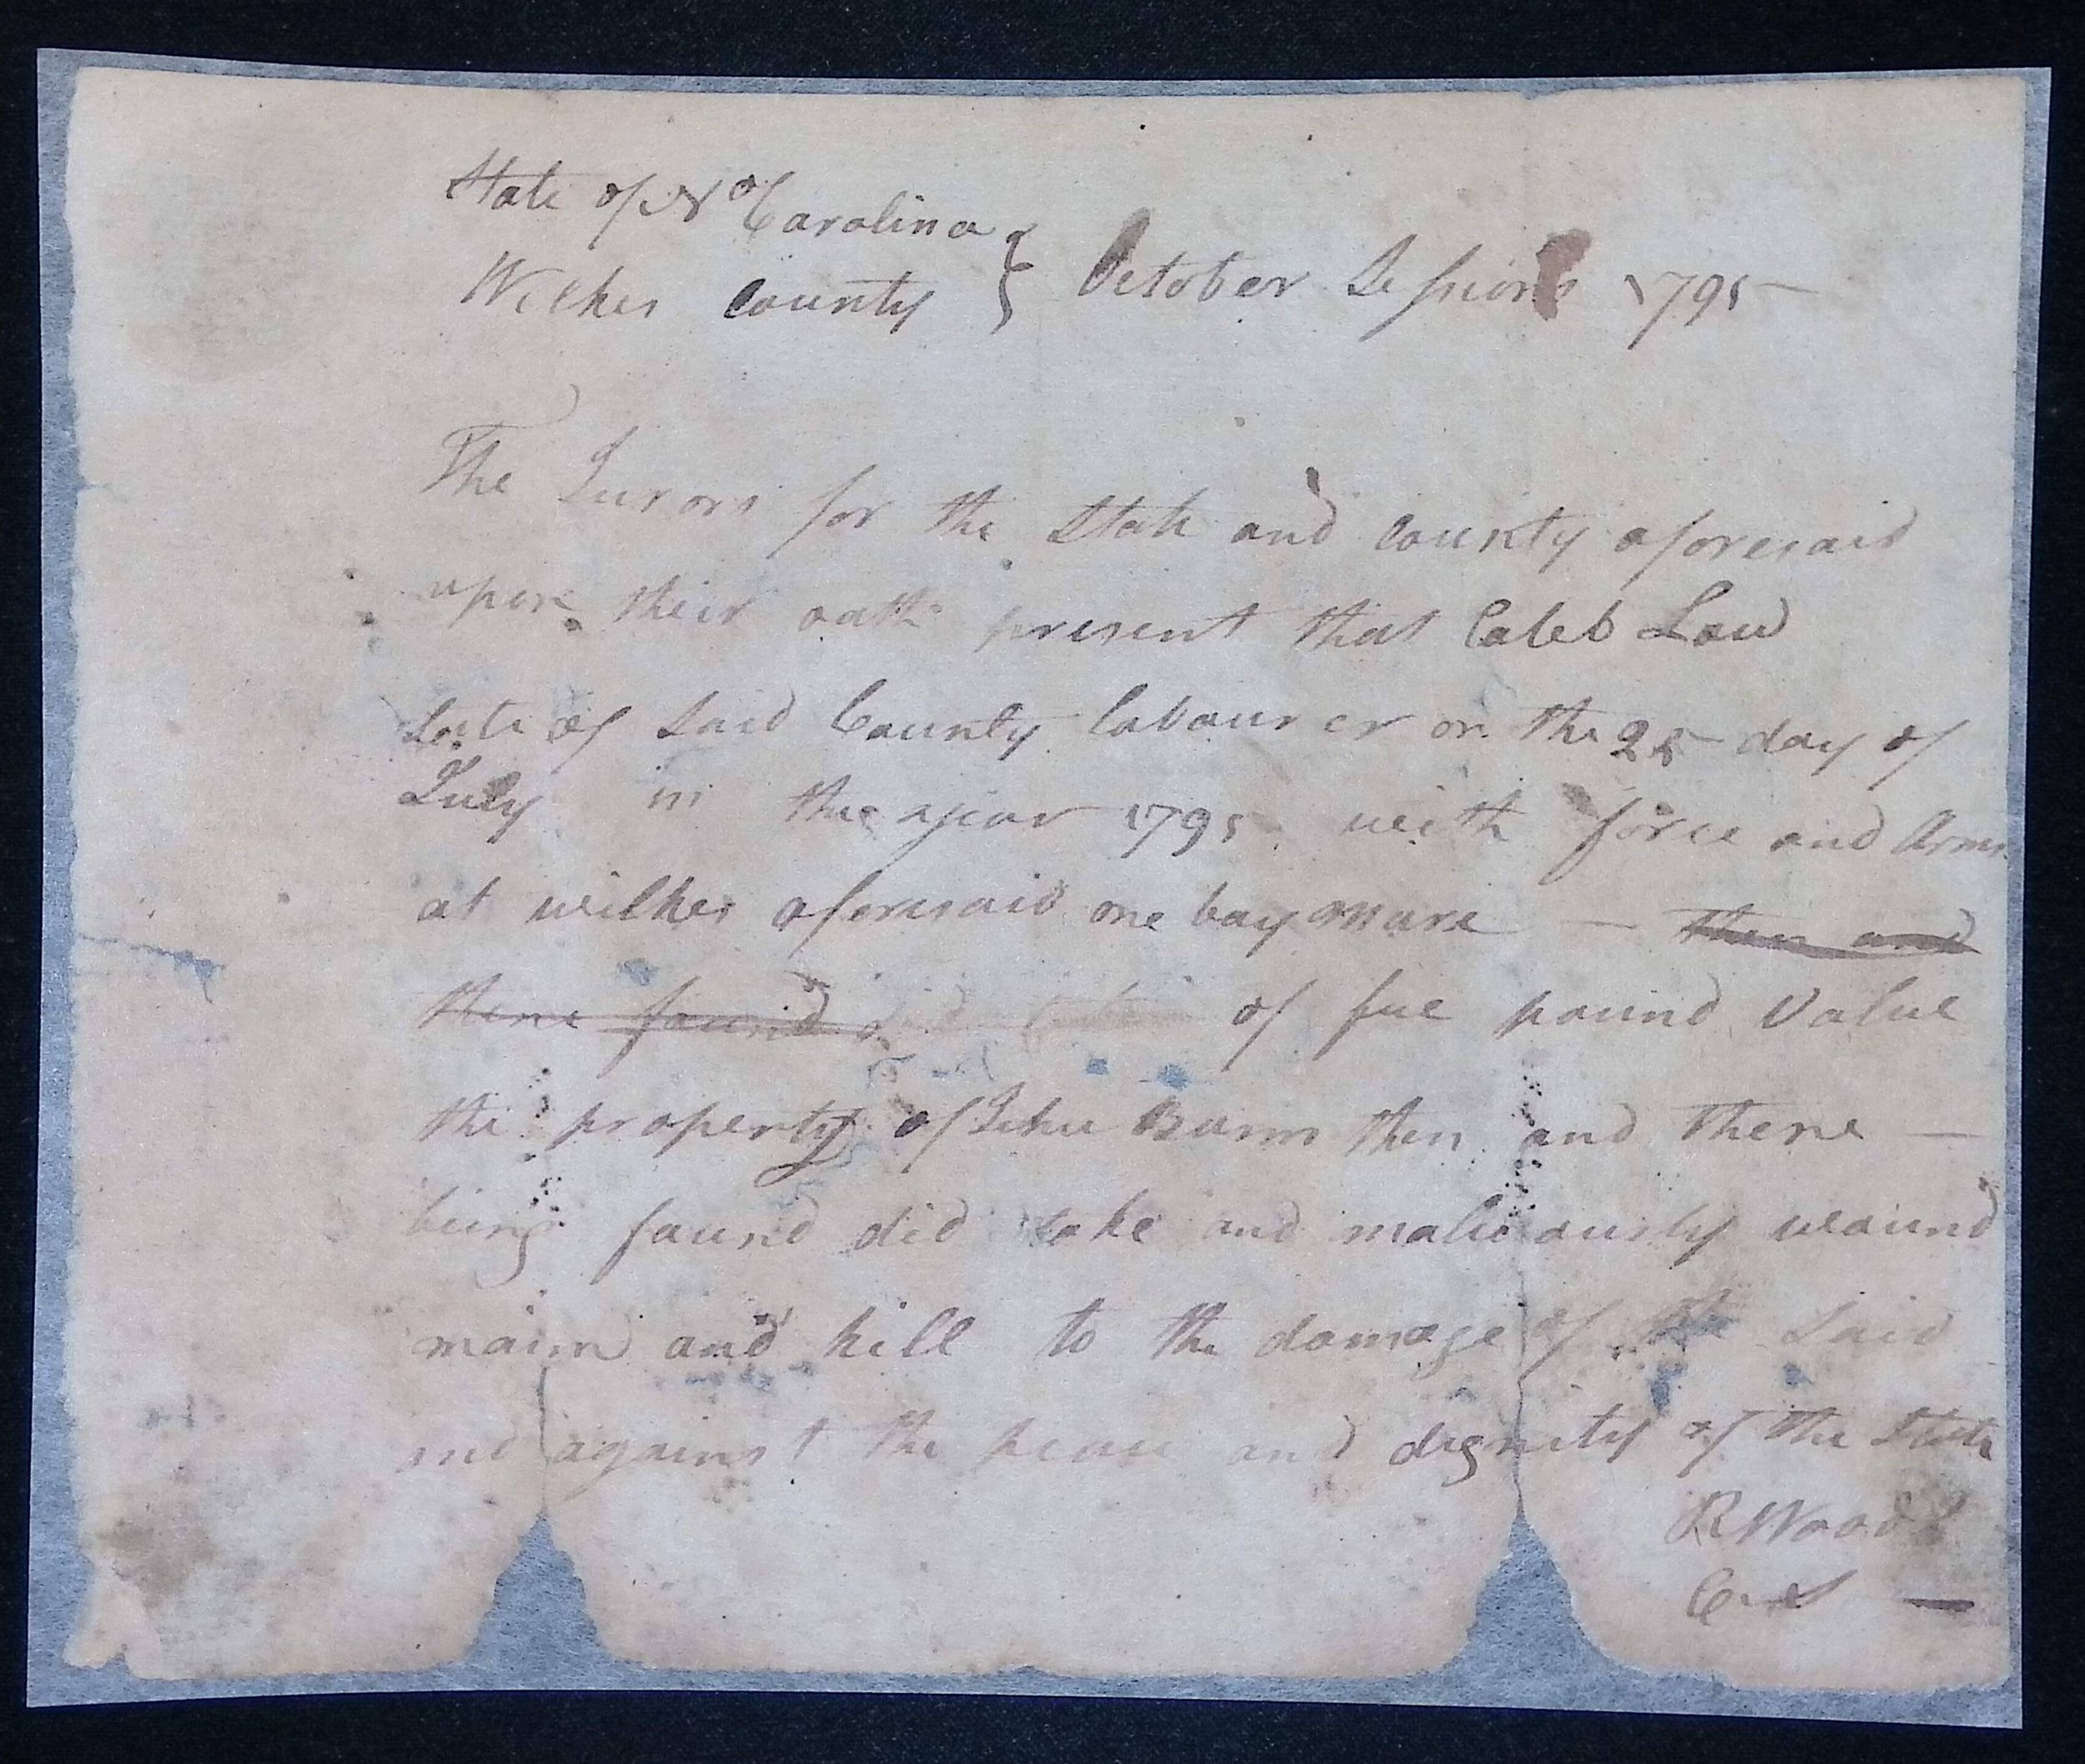 State of No Carolina
Wilkes County } October Sessions 1795
The Jurors for the State and County aforesaid
upon their oath present that Caleb Law
Late of said County labourer on the 25 day of
July in the year 1795 with force and Arms
at wilkes aforesaid one bay mare — then and
there found did of five pound Value
the property of Jehu Burns then and there —
being found did take and maliciously wound
maim and kill to the damage of the said
and against the peace and dignity of the State
R Wood